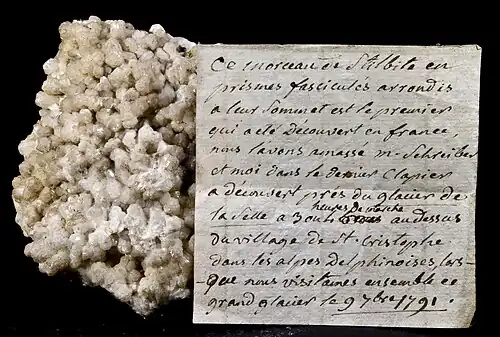 Ce morceau de Stilbite en
prismes fasciculés arrondis
a leur Sommet est le premier
qui a eté Découvert en france,
nous lavons amassé mr Schreiber
et moi dans le dernier Clapier
a découvert près du glacier de
heures de marche
la Selle a 3 ou 4 au dessus
du village de St. Cristophe
dans les alpes delphinoises, lors-
-que nous visitames ensemble ce
grand glacier le 9 7bre 1791.